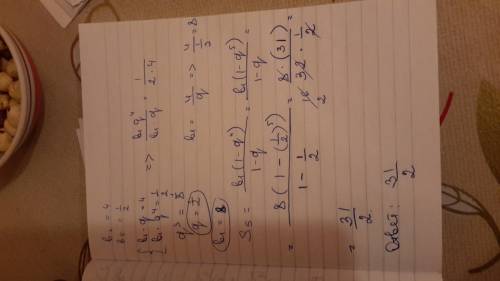 b₂ = 4
b₅ = 1/2
{ b₁ · q = 4
{ b₁ · q⁴ = 1/2 => b₁q⁴/b₁·q = 1/2·4
q³ = 1/8
q = 1/2
b₁ = 4/q => 4/(1/2) = 8
b₁ = 8
S₅ = b₁(1-qⁿ)/1-q = b₁(1-q⁵)/1-q =
= 8(1-(1/2)⁵)/1-1/2 = 8·(31)/32·1/2 =
= 31/2
Ответ: 31/2